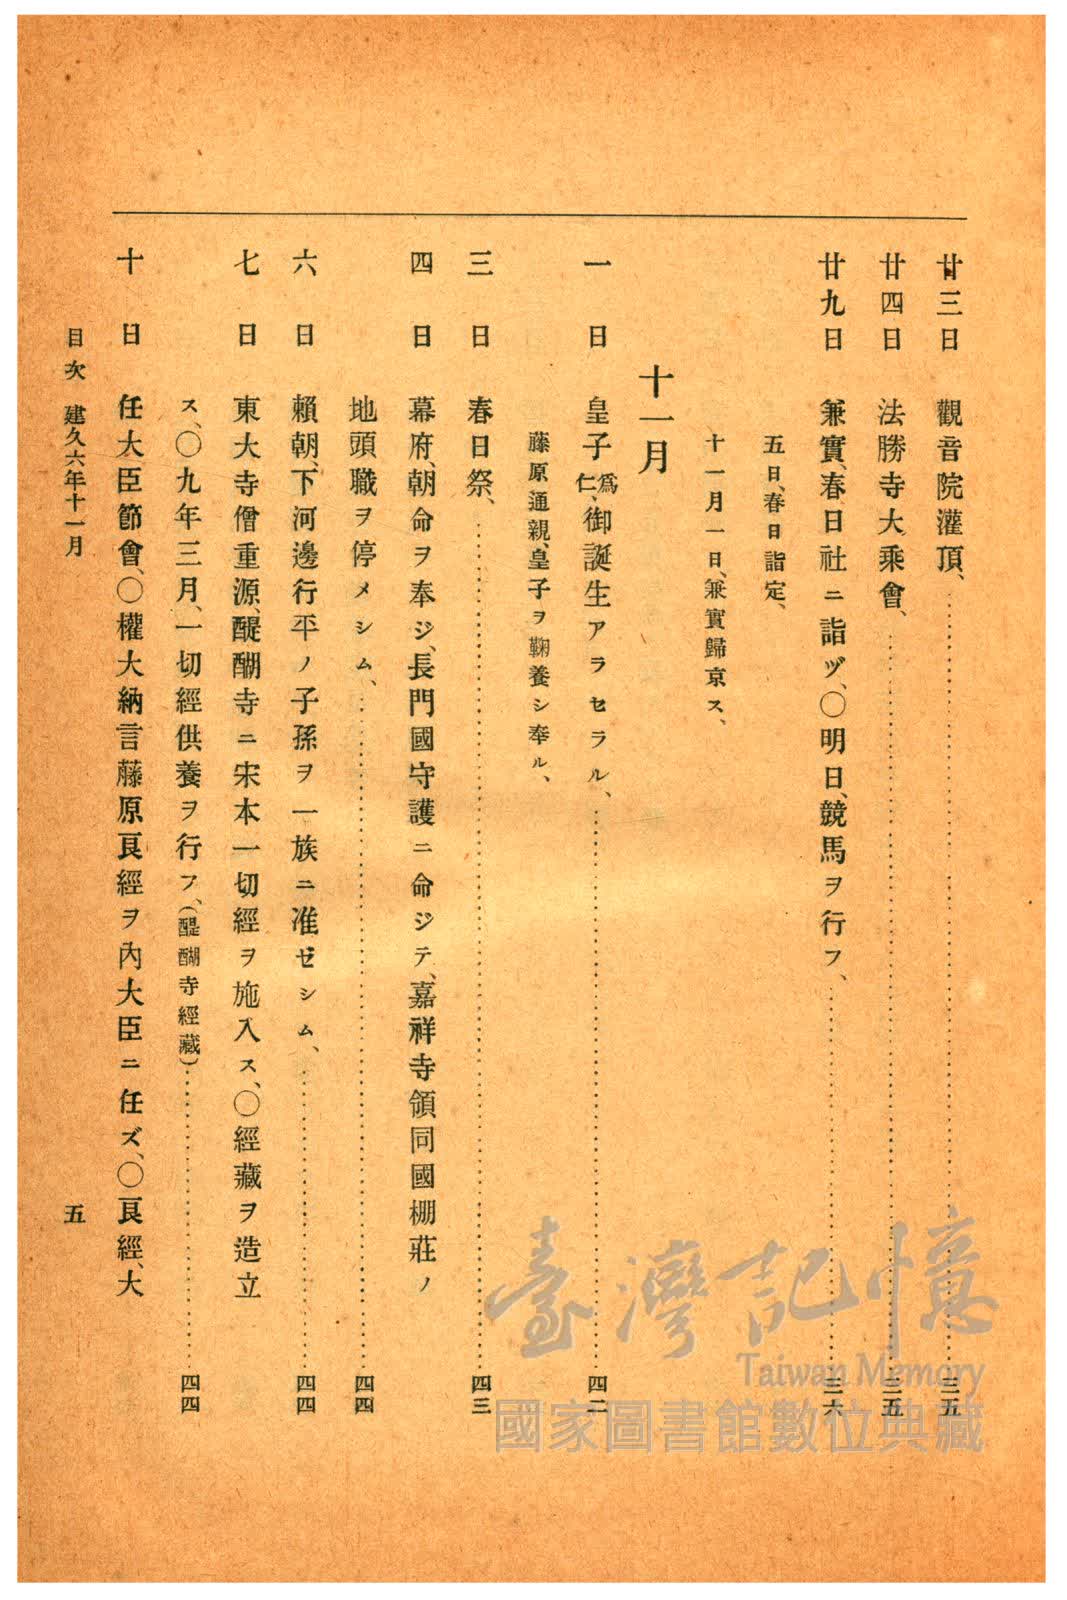 廿三日 觀音院灌頂、……三五
廿四日 法勝寺大乘會、……三五
廿九日 兼實、春日社ニ詣ヅ、〇明日、競馬ヲ行フ、……三六
五日、春日詣定、
十一月一日、兼實歸京ス、
十一月
一日 皇子爲仁、御誕生アラセラル、……四二
藤原通親、皇子ヲ鞠養シ奉ル、
三日 春日祭、……四三
四日 幕府、朝命ヲ奉ジ、長門國守護ニ命ジテ、嘉祥寺領同國棚莊ノ
地頭職ヲ停メシム、……四四
六日 賴朝、下河邊行平ノ子孫ヲ一族ニ准ゼシム、……四四
七日 東大寺僧重源、醍醐寺ニ宋本一切經ヲ施入ス、〇經藏ヲ造立
ス、〇九年三月、一切經供養ヲ行フ、(醍醐寺經藏)……四四
十日 任大臣節會、〇權大納言藤原良經ヲ內大臣ニ任ズ、〇良經、大
目次 建久六年十一月 五
臺灣記憶
Taiwan Memory
國家圖書館數位典藏